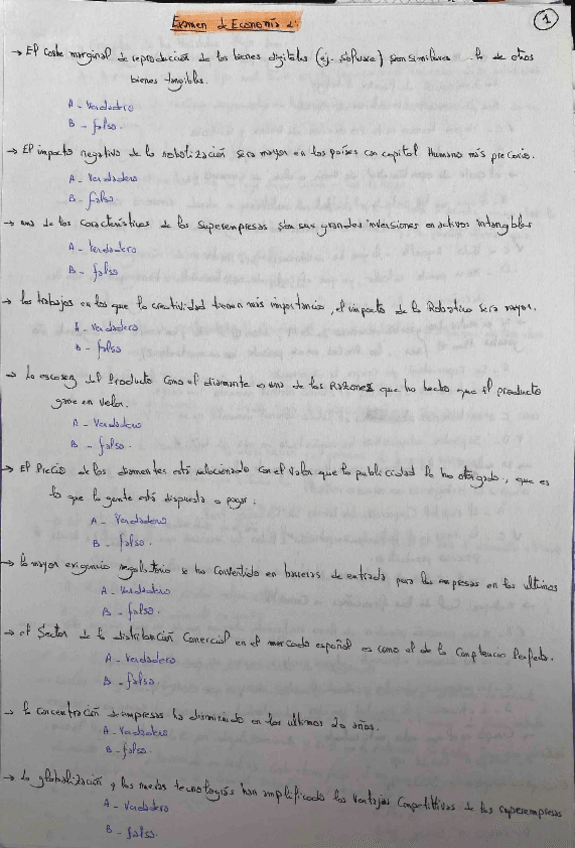 Examen de Economía 2:
1
→ El coste marginal de reproducción de los bienes digitales (ej- software) son similares a lo de otros
bienes tangibles.
A - Verdadero
B - falso.
→ El impacto negativo de la robotización sera mayor en los países con capital Humano más precario.
A - Verdadero
B - falso.
→ una de las características de las superempresas son sus grandes inversiones en activos intangibles
A - Verdadero
B - falso.
→ los trabajos en los que la creatividad tienen más importancia, el impacto de la Robotica sera mayor.
A - Verdadero
B - falso
→ La escasez del Producto como el diamante es una de las Razones que ha hecho que el producto
gane en valor.
A - Verdadero
B - falso.
→ El Precio de los diamantes está relacionado con el valor que la publicidad le ha otorgado, que es
lo que la gente está dispuesta a pagar.
A - Verdadero
B - falso.
→ la mayor exigencia regulatoria se ha convertido en barreras de entrada para las empresas en los ultimos
A - Verdadero
B - falso.
→ el Sector de la distribución Comercial en el mercado español es como el de la Competencia Perfecta.
A - Verdadero
B - falso.
→ la concentración de empresas ha disminuido en los ultimos 20 años.
A - Verdadero
B - falso.
→ La globalización y las nuevas tecnologías han amplificado las ventajas Competitivas de las superempresas
A - Verdadero
B - falso.